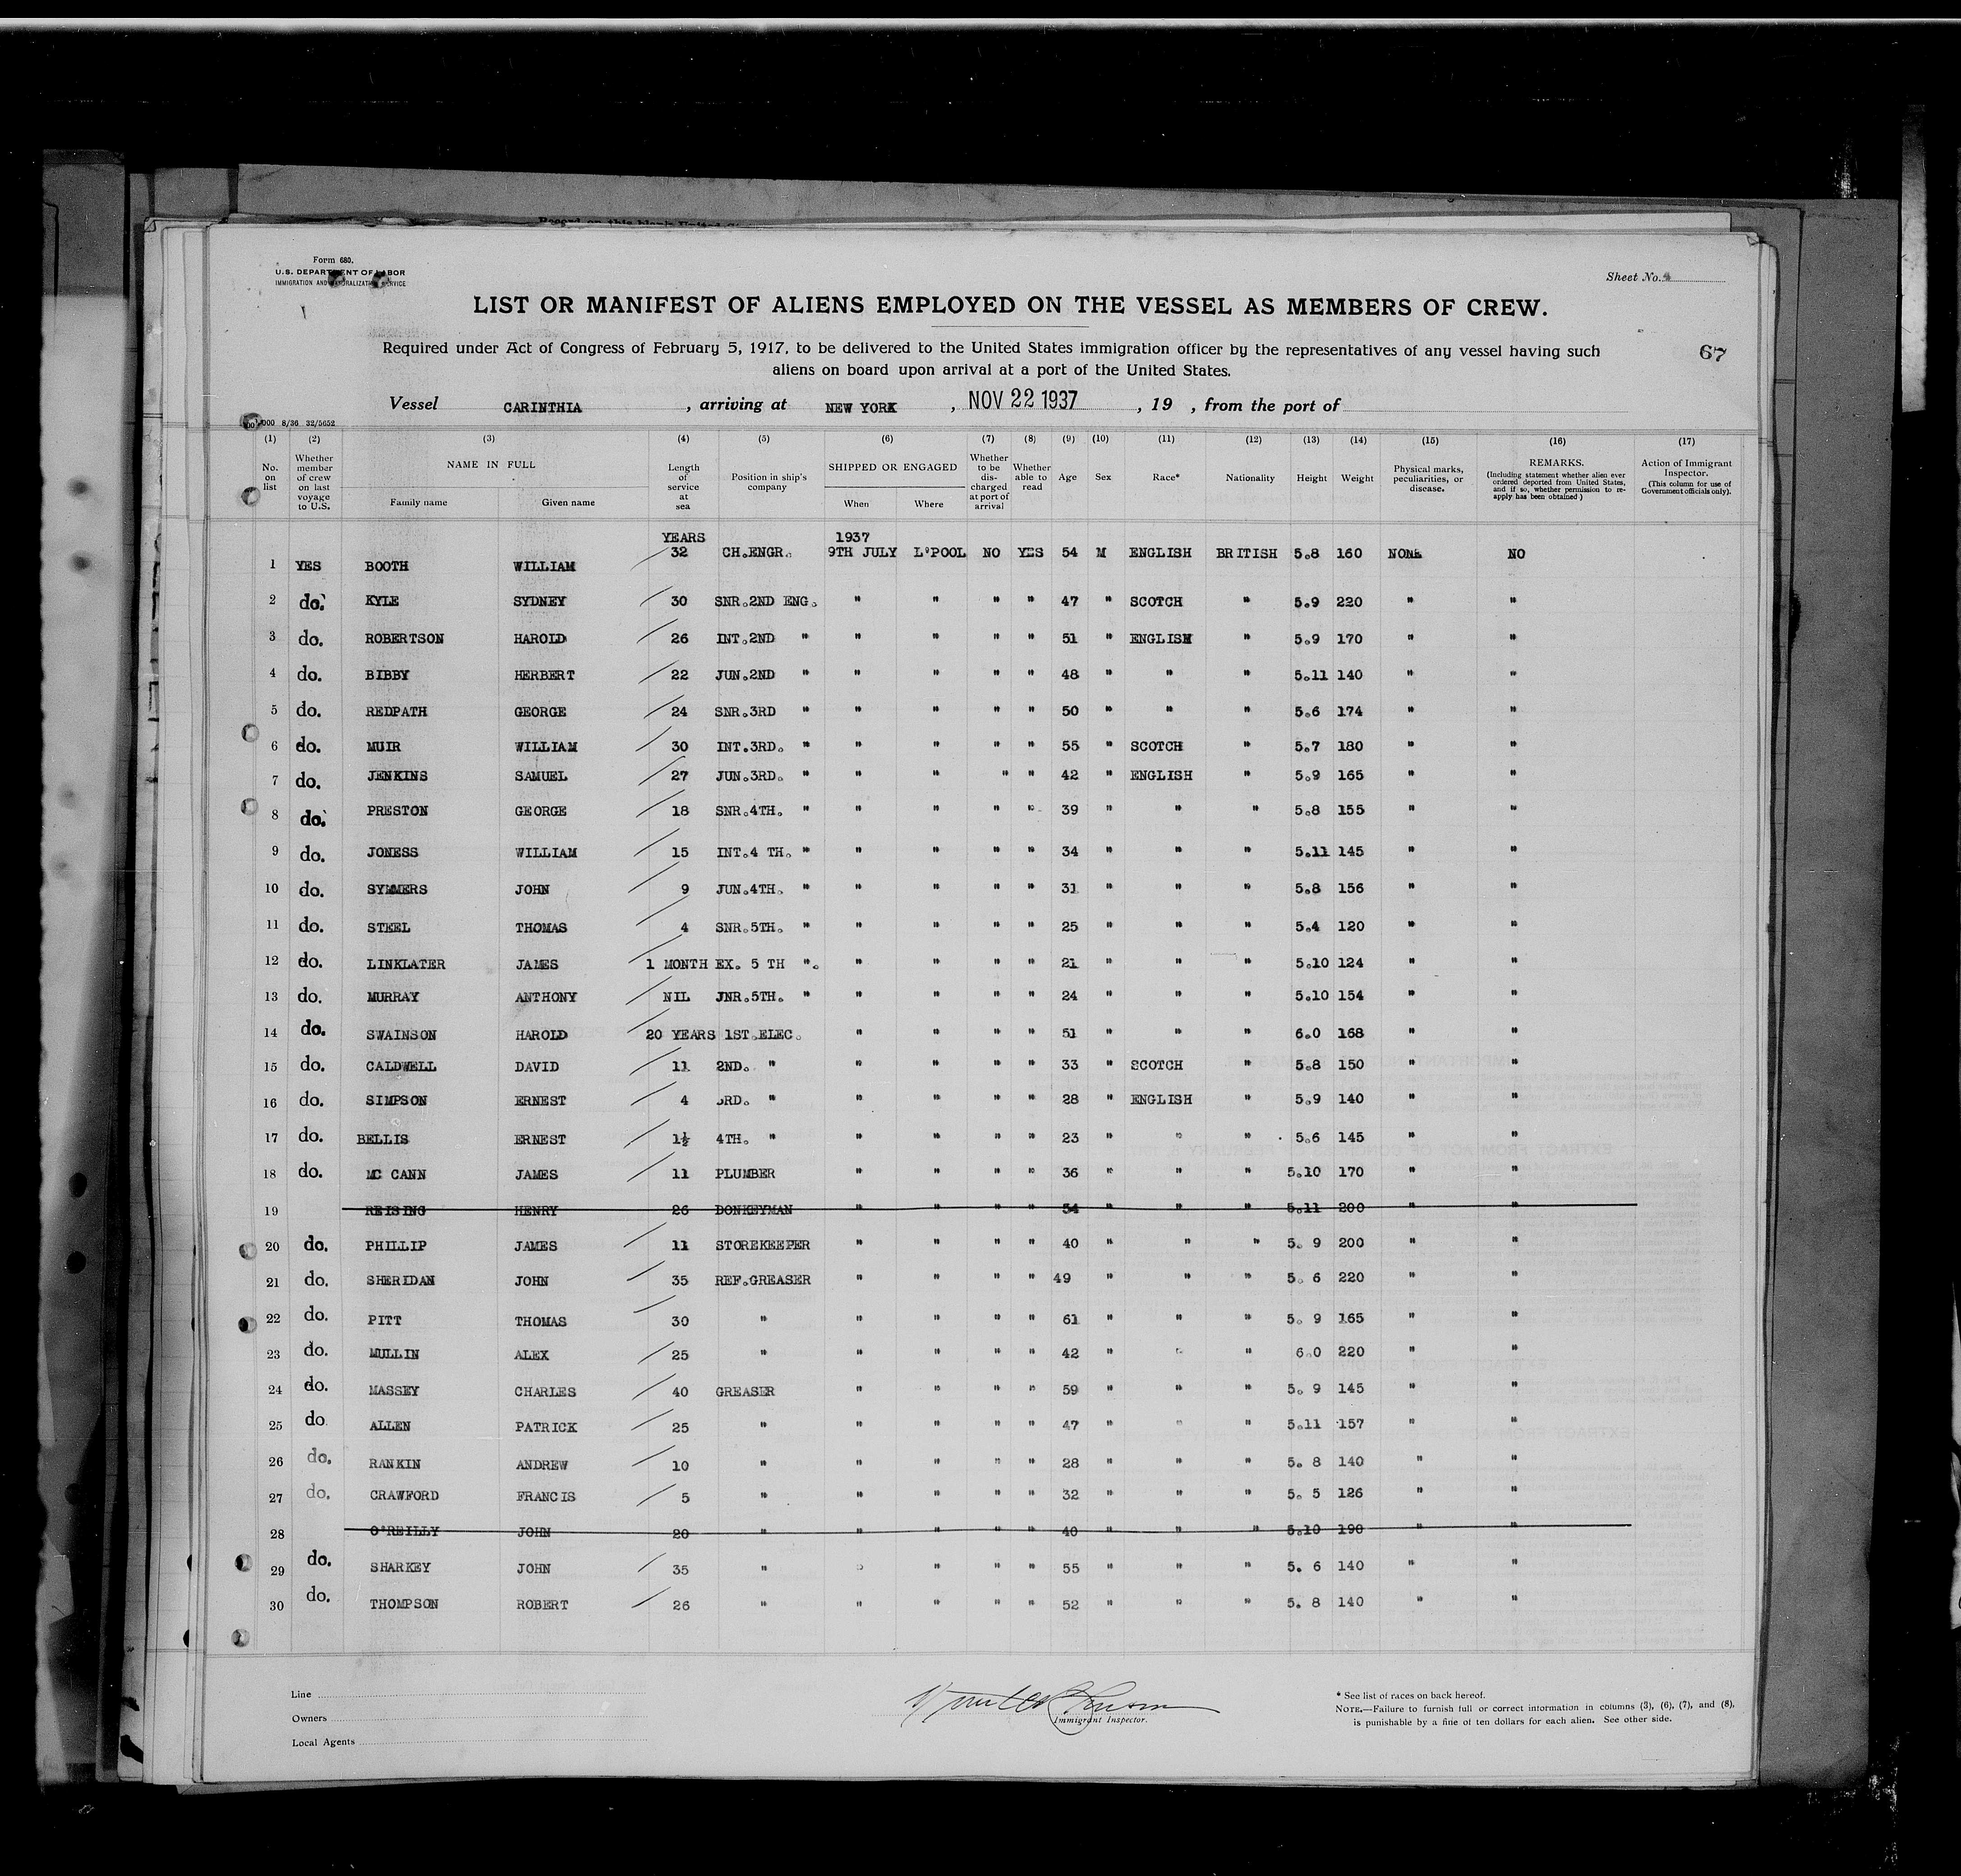 Form 680.
U.S. DEPARTMENT OF LABOR
IMMIGRATION AND NATURALIZATION SERVICE
Sheet No.
LIST OR MANIFEST OF ALIENS EMPLOYED ON THE VESSEL AS MEMBERS OF CREW.
Required under Act of Congress of February 5, 1917, to be delivered to the United States immigration officer by the representatives of any vessel having such
67
aliens on board upon arrival at a port of the United States.
Vessel CARINTHIA , arriving at NEW YORK , NOV 22 1937 , 19 , from the port of
000 8/36 32/5652
(1) (2) (3) (4) (5) (6) (7) (8) (9) (10) (11) (12) (13) (14) (15) (16) (17)
No. on list Whether member of crew on last voyage to U.S. NAME IN FULL Family name Given name Length of service at sea Position in ship's company SHIPPED OR ENGAGED When Where Whether to be discharged at port of arrival Whether able to read Age Sex Race* Nationality Height Weight Physical marks, peculiarities, or disease. REMARKS. (Including statement whether alien ever ordered deported from United States, and if so, whether permission to reapply has been obtained) Action of Immigrant Inspector. (This column for use of Government officials only).
YEARS 1937
1 YES BOOTH WILLIAM 32 CH.ENGR. 9TH JULY L'POOL NO YES 54 M ENGLISH BRITISH 5.8 160 NONE NO
2 do. KYLE SYDNEY 30 SNR.2ND ENG. " " " " 47 " SCOTCH " 5.9 220 " "
3 do. ROBERTSON HAROLD 26 INT.2ND " " " " " 51 " ENGLISH " 5.9 170 " "
4 do. BIBBY HERBERT 22 JUN.2ND " " " " " 48 " " " 5.11 140 " "
5 do. REDPATH GEORGE 24 SNR.3RD " " " " " 50 " " " 5.6 174 " "
6 do. MUIR WILLIAM 30 INT.3RD. " " " " " 55 " SCOTCH " 5.7 180 " "
7 do. JENKINS SAMUEL 27 JUN.3RD. " " " " " 42 " ENGLISH " 5.9 165 " "
8 do. PRESTON GEORGE 18 SNR.4TH. " " " " " 39 " " " 5.8 155 " "
9 do. JONESS WILLIAM 15 INT.4 TH. " " " " " 34 " " " 5.11 145 " "
10 do. SYMMERS JOHN 9 JUN.4TH. " " " " " 31 " " " 5.8 156 " "
11 do. STEEL THOMAS 4 SNR.5TH. " " " " " 25 " " " 5.4 120 " "
12 do. LINKLATER JAMES 1 MONTH EX. 5 TH ". " " " " 21 " " " 5.10 124 " "
13 do. MURRAY ANTHONY NIL JNR.5TH. " " " " " 24 " " " 5.10 154 " "
14 do. SWAINSON HAROLD 20 YEARS 1ST.ELEC. " " " " 51 " " " 6.0 168 " "
15 do. CALDWELL DAVID 11 2ND. " " " " " 33 " SCOTCH " 5.8 150 " "
16 do. SIMPSON ERNEST 4 3RD. " " " " " 28 " ENGLISH " 5.9 140 " "
17 do. BELLIS ERNEST 1½ 4TH. " " " " " 23 " " " 5.6 145 " "
18 do. MC CANN JAMES 11 PLUMBER " " " " 36 " " " 5.10 170 " "
19 REISING HENRY 26 DONKEYMAN " " " " 54 " " " 5.11 200 " "
20 do. PHILLIP JAMES 11 STOREKEEPER " " " " 40 " " " 5. 9 200 " "
21 do. SHERIDAN JOHN 35 REF.GREASER " " " " 49 " " " 5. 6 220 " "
22 do. PITT THOMAS 30 " " " " " 61 " " " 5. 9 165 " "
23 do. MULLIN ALEX 25 " " " " " 42 " " " 6.0 220 " "
24 do. MASSEY CHARLES 40 GREASER " " " " 59 " " " 5. 9 145 " "
25 do ALLEN PATRICK 25 " " " " " 47 " " " 5.11 157 " "
26 do. RANKIN ANDREW 10 " " " " " 28 " " " 5. 8 140 " "
27 do. CRAWFORD FRANCIS 5 " " " " " 32 " " " 5. 5 126 " "
28 O'REILLY JOHN 20 " " " " " 40 " " " 5.10 190 " "
29 do. SHARKEY JOHN 35 " " " " " 55 " " " 5. 6 140 " "
30 do. THOMPSON ROBERT 26 " " " " " 52 " " " 5. 8 140 " "
Line
Owners
Local Agents
Immigrant Inspector.
* See list of races on back hereof.
NOTE.—Failure to furnish full or correct information in columns (3), (6), (7), and (8),
is punishable by a fine of ten dollars for each alien. See other side.